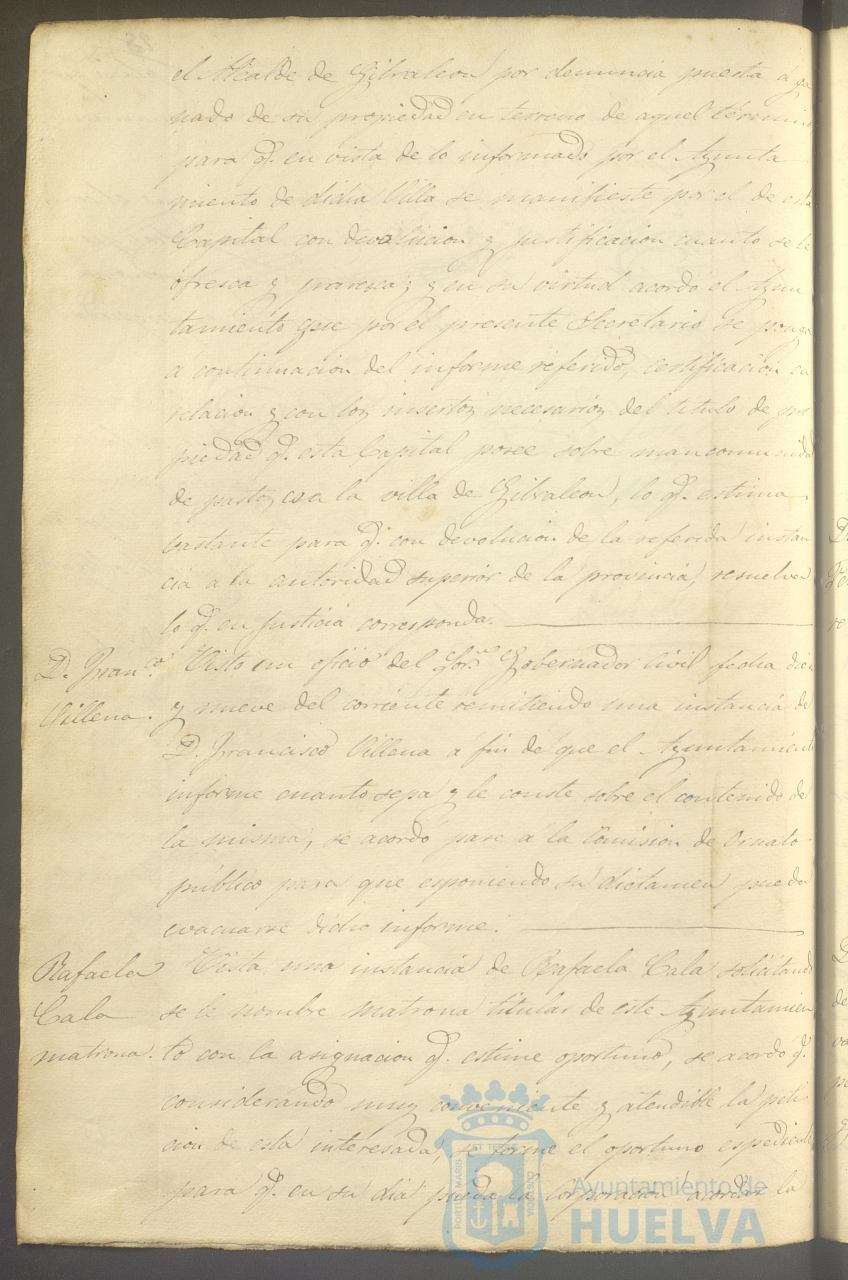 el Alcalde de Gibraleon por denuncia puesta á ga
nado de su propiedad en terreno de aquel término
para q.e en vista de lo informado por el Ayunta
miento de dicha Villa se manifieste por el de esta
Capital con devolucion y justificacion cuanto se le
ofresca y paresca; y en su virtud acordó el Ayun
tamiento que por el presente Secretario se ponga
a continuacion del informe referido, certificacion en
relacion y con los insertos necesarios del titulo de pro
piedad q.e esta Capital posee sobre mancomunidad
de pastos con la villa de Gibraleon, lo q.e estima
bastante para q.e con devolucion de la referida instan
cia a la autoridad superior de la provincia, resuelva
lo q.e en justicia corresponda.
D. Fran.co
Villena.
Visto un oficio del Gobernador Civil fecha diez
y nueve del corriente remitiendo una instancia de
D. Francisco Villena a fin de que el Ayuntamiento
informe cuanto sepa y le conste sobre el contenido de
la misma, se acordó pase a la Comision de Ornato
público para que esponiendo su dictamen pueda
evacuarse dicho informe.
Rafaela
Cala
matrona.
Vista una instancia de Rafaela Cala solicitando
se le nombre matrona titular de este Ayuntamien
to con la asignacion q.e estime oportuno, se acordó q.e
considerando muy conveniente y atendible la peti
cion de esta interesada, se forme el oportuno espediente
para q.e en su dia pueda la Corporacion acordar la
PORTUS MARIS
ET TERRAE
CUSTODIA
Ayuntamiento de
HUELVA